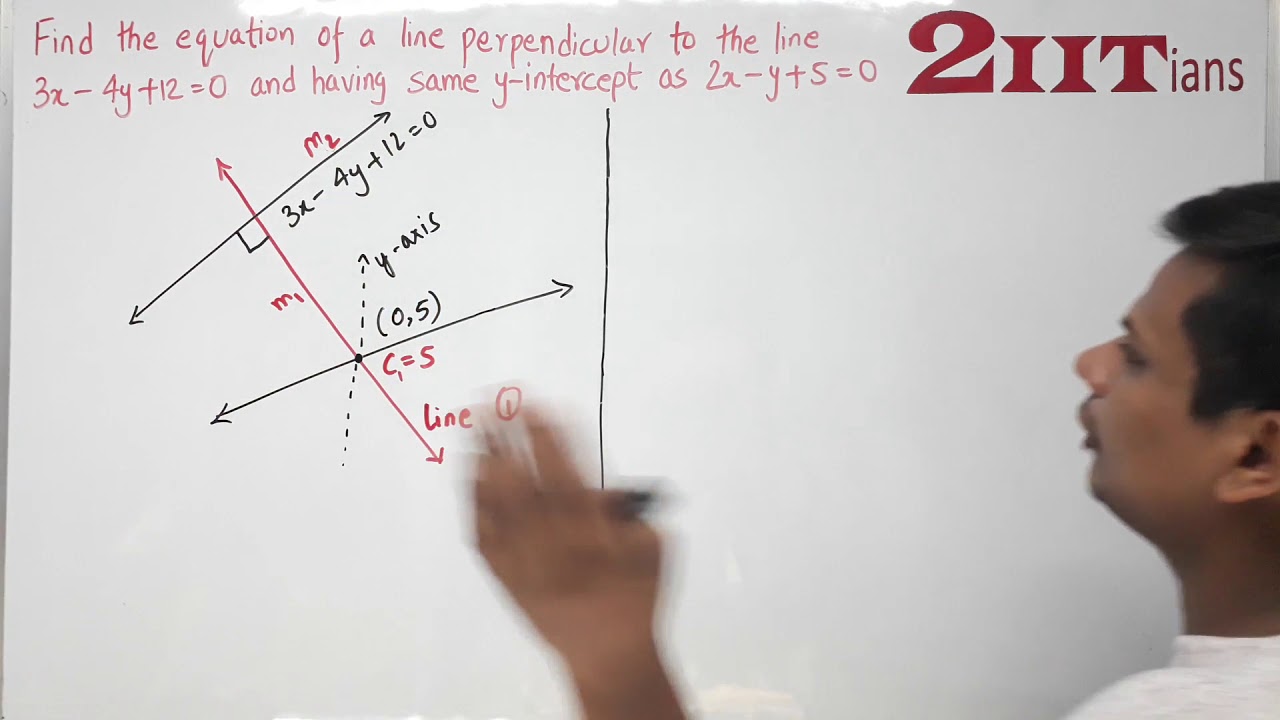 Find the equation of a line perpendicular to the line
3x - 4y + 12 = 0 and having same y-intercept as 2x - y + 5 = 0
2IITians
m2
3x - 4y + 12 = 0
y-axis
m1
(0,5)
C1 = 5
line ①